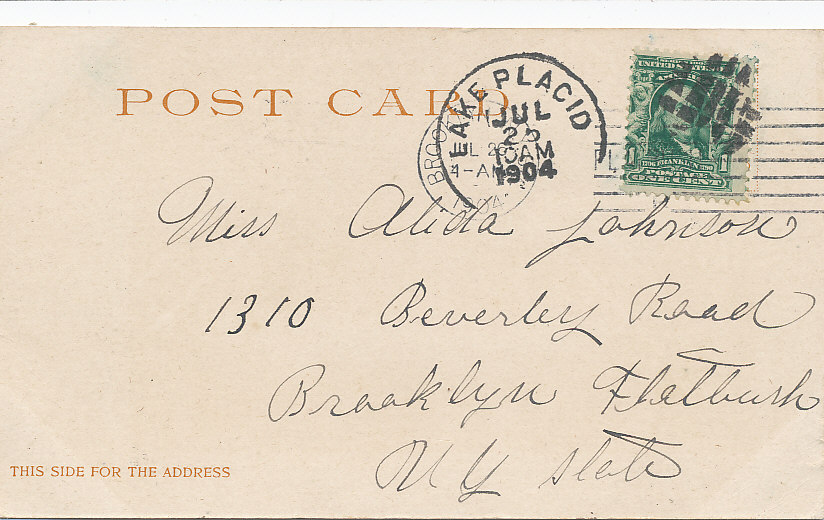 POST CARD
LAKE PLACID
JUL
25
10AM
1904
BROOK
JUL 26
4-AM
1904
UNITED STATES
FRANKLIN
POSTAGE
1 ONE CENT 1
Miss Alida Johnson
1310 Beverley Road
Brooklyn Flatbush
N Y State
THIS SIDE FOR THE ADDRESS